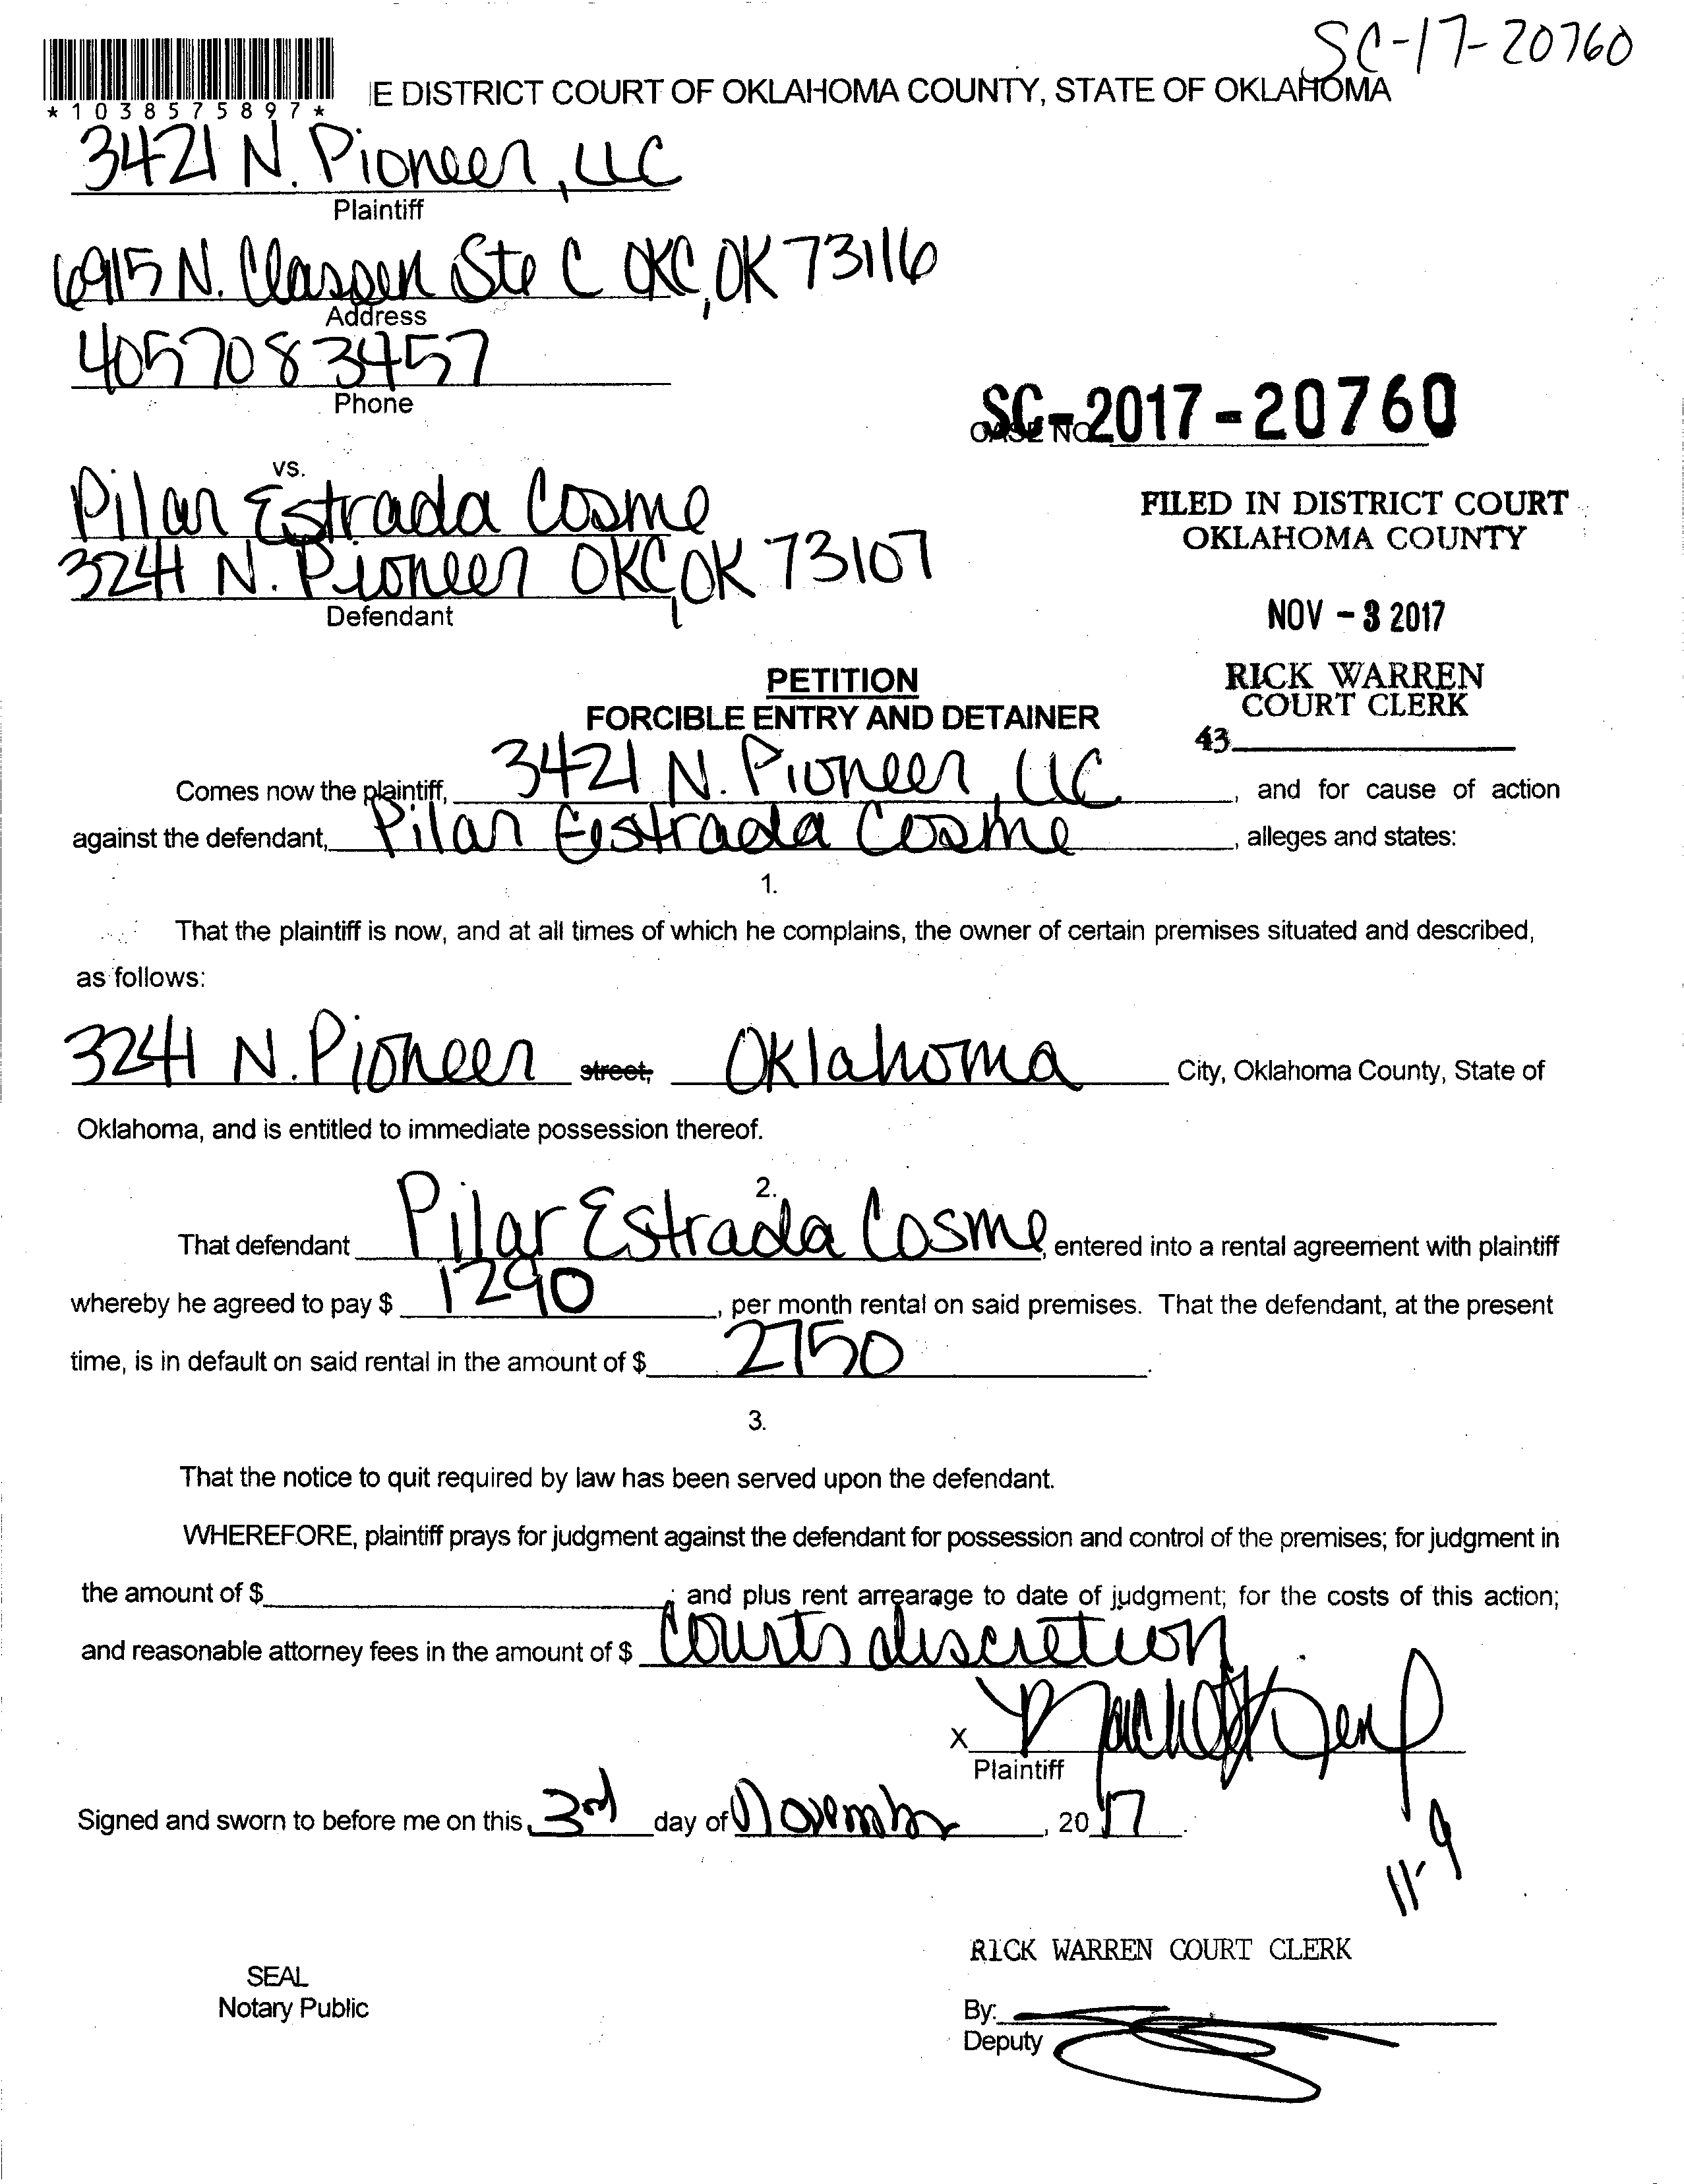 SC-17-20760
*1038575897*
E DISTRICT COURT OF OKLAHOMA COUNTY, STATE OF OKLAHOMA
3421 N. Pioneer, LLC
Plaintiff
6915 N. Classen Ste C OKC, OK 73116
Address
4057083457
Phone
SC-2017-20760
CASE NO.
vs.
Pilar Estrada Cosme
3241 N. Pioneer OKC, OK 73107
Defendant
FILED IN DISTRICT COURT
OKLAHOMA COUNTY
NOV - 3 2017
RICK WARREN
COURT CLERK
43
PETITION
FORCIBLE ENTRY AND DETAINER
Comes now the plaintiff, 3421 N. Pioneer, LLC, and for cause of action
against the defendant, Pilar Eestrada Cosme, alleges and states:
1.
That the plaintiff is now, and at all times of which he complains, the owner of certain premises situated and described,
as follows:
3241 N. Pioneer street, Oklahoma City, Oklahoma County, State of
Oklahoma, and is entitled to immediate possession thereof.
2.
That defendant Pilar Estrada Cosme, entered into a rental agreement with plaintiff
whereby he agreed to pay $ 1290, per month rental on said premises. That the defendant, at the present
time, is in default on said rental in the amount of $ 2750.
3.
That the notice to quit required by law has been served upon the defendant.
WHEREFORE, plaintiff prays for judgment against the defendant for possession and control of the premises; for judgment in
the amount of $ ; and plus rent arrearage to date of judgment; for the costs of this action;
and reasonable attorney fees in the amount of $ Courts discretion
X
Plaintiff
Signed and sworn to before me on this 3rd day of November, 2017.
11-9
RICK WARREN COURT CLERK
SEAL
Notary Public
By:
Deputy